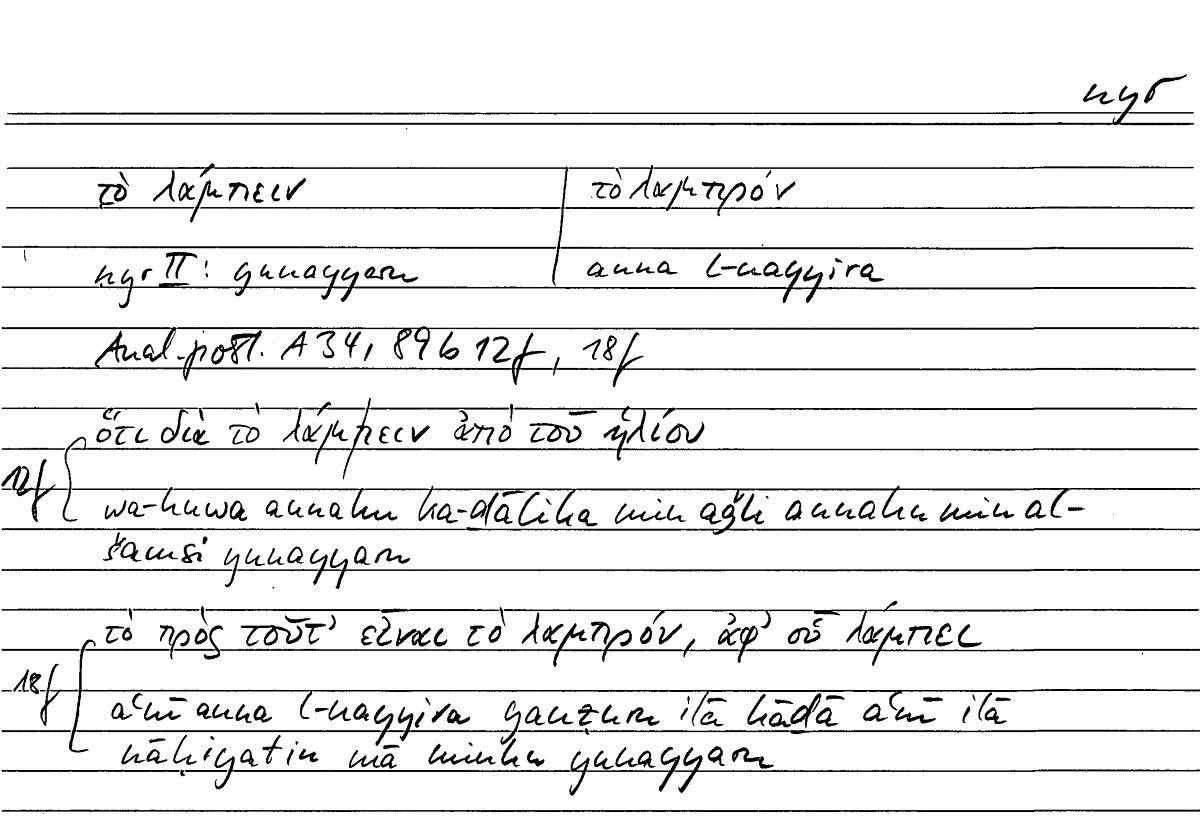 nyr
τὸ λάμπειν | τὸ λαμπρόν
nyr II: yunayyaru | anna l-nayyira
Anal. post. A 34, 89b 12f, 18f
ὅτι διὰ τὸ λάμπειν ἀπὸ τοῦ ἡλίου
12f
wa-huwa annahu ka-ḏālika min aǧli annahu min al-
šamsi yunayyaru
τὸ πρὸς τοῦτ᾽ εἶναι τὸ λαμπρόν, ἀφ᾽ οὗ λάμπει
18f
aʿnī anna l-nayyira yanẓuru ilā hāḏā aʿnī ilā
nāḥiyatin mā minhu yunayyaru